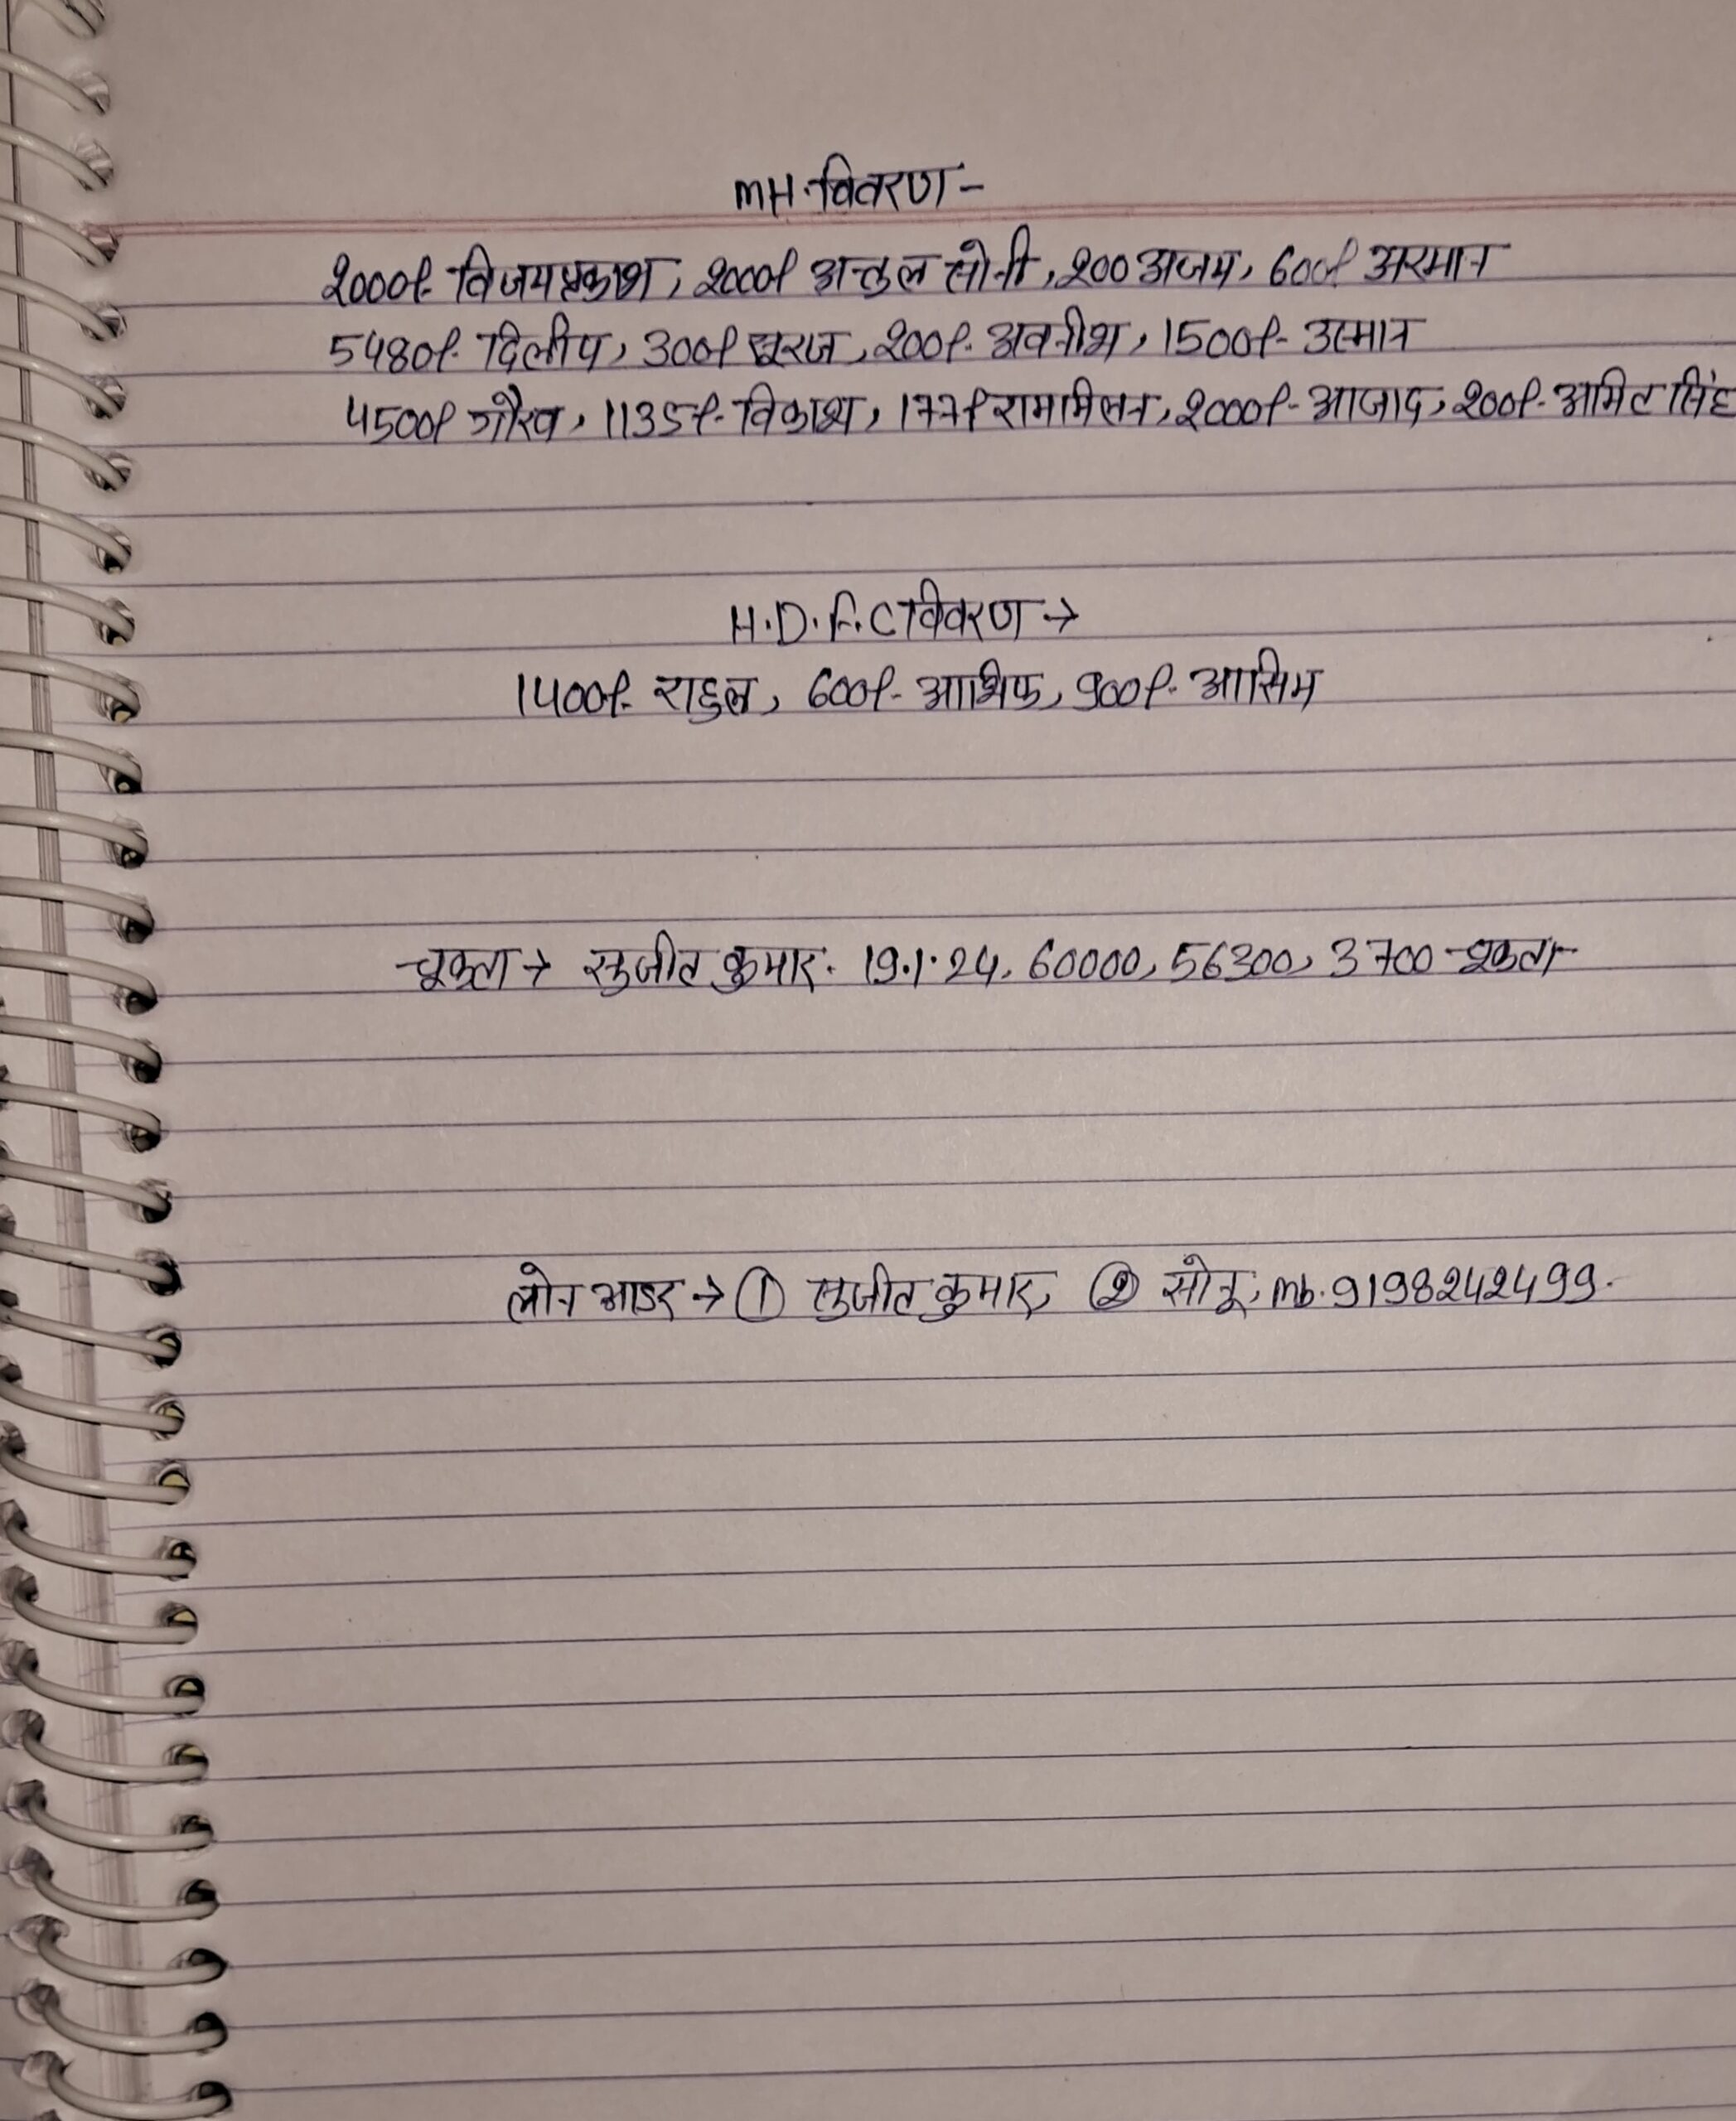 MH. विवरण -
2000/- विजयप्रकाश, 2000/- अतुल सोनी, 200 अजय, 600/- अरमान
5480/- दिलीप, 300/- सूरज, 200/- अवनीश, 1500/- उस्मान
4500/- गौरव, 1135/- विकाश, 177/- राममिलन, 2000/- आजाद, 200/- अमित सिंह
H.D.F.C विवरण →
1400/- राहुल, 600/- आशिफ, 900/- आसिम
चूकता → सुजीत कुमार. 19.1.24, 60000, 56300, 3700 चूकता
लोन आडर → ① सुजीत कुमार, ② सोनू, mb. 9198242499.